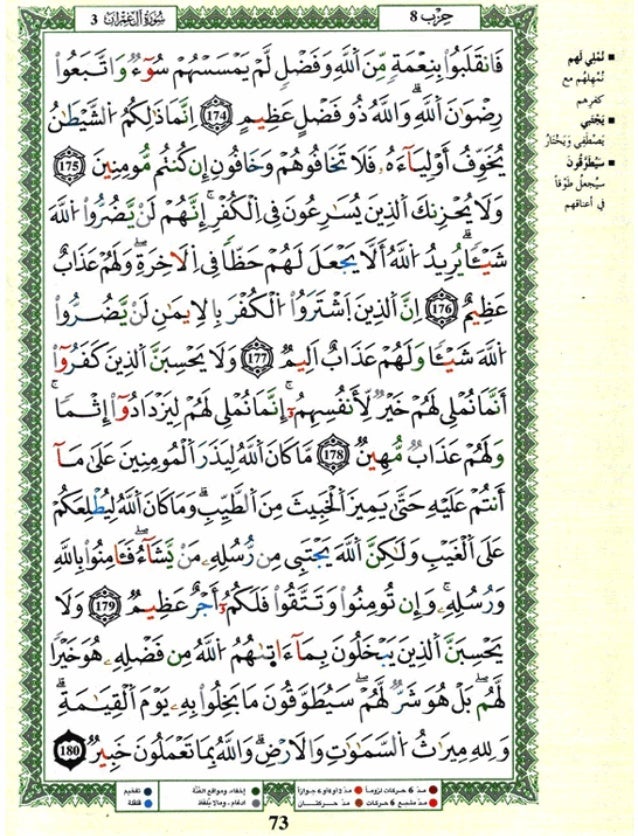 سُورَةُ آلِ عِمْرَانَ 3
حِزْب 8
فَانقَلَبُواْ بِنِعْمَةٍ مِّنَ اَللَّهِ وَفَضْلٍ لَّمْ يَمْسَسْهُمْ سُوٓءٌ وَاتَّبَعُواْ
رِضْوَٰنَ اَللَّهِ وَاللَّهُ ذُو فَضْلٍ عَظِيمٍ 174 اِنَّمَا ذَٰلِكُمُ اُلشَّيْطَٰنُ
يُخَوِّفُ أَوْلِيَآءَهُۥ فَلَا تَخَافُوهُمْ وَخَافُونِ إِن كُنتُم مُّومِنِينَ 175
وَلَا يُحْزِنكَ اَلذِينَ يُسَٰرِعُونَ فِى اِلْكُفْرِ إِنَّهُمْ لَنْ يَّضُرُّواْ اُللَّهَ
شَيْـًٔا يُرِيدُ اُللَّهُ أَلَّا يَجْعَلَ لَهُمْ حَظًّا فِى اِلَاخِرَةِ وَلَهُمْ عَذَابٌ
عَظِيمٌ 176 اِنَّ اَلذِينَ اَشْتَرَوُاْ اُلْكُفْرَ بِالِايمَٰنِ لَنْ يَّضُرُّواْ
اُللَّهَ شَيْـًٔا وَلَهُمْ عَذَابٌ اَلِيمٌ 177 وَلَا يَحْسِبَنَّ اَلذِينَ كَفَرُوٓاْ
أَنَّمَا نُمْلِى لَهُمْ خَيْرٌ لِّأَنفُسِهِمُۥٓ إِنَّمَا نُمْلِى لَهُمْ لِيَزْدَادُوٓاْ إِثْمًا
وَلَهُمْ عَذَابٌ مُّهِينٌ 178 مَّا كَانَ اَللَّهُ لِيَذَرَ اَلْمُومِنِينَ عَلَىٰ مَآ
أَنتُمْ عَلَيْهِ حَتَّىٰ يَمِيزَ اَلْخَبِيثَ مِنَ اَلطَّيِّبِ وَمَا كَانَ اَللَّهُ لِيُطْلِعَكُمْ
عَلَى اَلْغَيْبِ وَلَٰكِنَّ اَللَّهَ يَجْتَبِى مِن رُّسُلِهِۦ مَنْ يَّشَآءُ فَـَٔامِنُواْ بِاللَّهِ
وَرُسُلِهِۦ وَإِن تُومِنُواْ وَتَتَّقُواْ فَلَكُمُۥٓ أَجْرٌ عَظِيمٌ 179 وَلَا
يَحْسِبَنَّ اَلذِينَ يَبْخَلُونَ بِمَآ ءَاتَىٰهُمُ اُللَّهُ مِن فَضْلِهِۦ هُوَ خَيْرًا
لَّهُم بَلْ هُوَ شَرٌّ لَّهُمْ سَيُطَوَّقُونَ مَا بَخِلُواْ بِهِۦ يَوْمَ اَلْقِيَٰمَةِ
وَلِلهِ مِيرَٰثُ اُلسَّمَٰوَٰتِ وَالَارْضِ وَاللَّهُ بِمَا تَعْمَلُونَ خَبِيرٌ 180
■ نُمْلِي لَهُم
نُمْهِلُهُم مَع
كفرِهم
■ يَجْتَبِي
يَصْطَفِي وَيَخْتَارُ
■ سَيُطَوَّقُونَ
سيُجعلُ طَوْقاً
في أعناقهم
مدّ 6 حركات لزوماً مدّ 2 أو 4 أو 6 جوازاً إخفاء، ومواقع الغُنَّة تفخيم
مدّ مشبع 6 حركات مدّ حركتان إدغام، وما لا يُلفَظ قلقلة
73